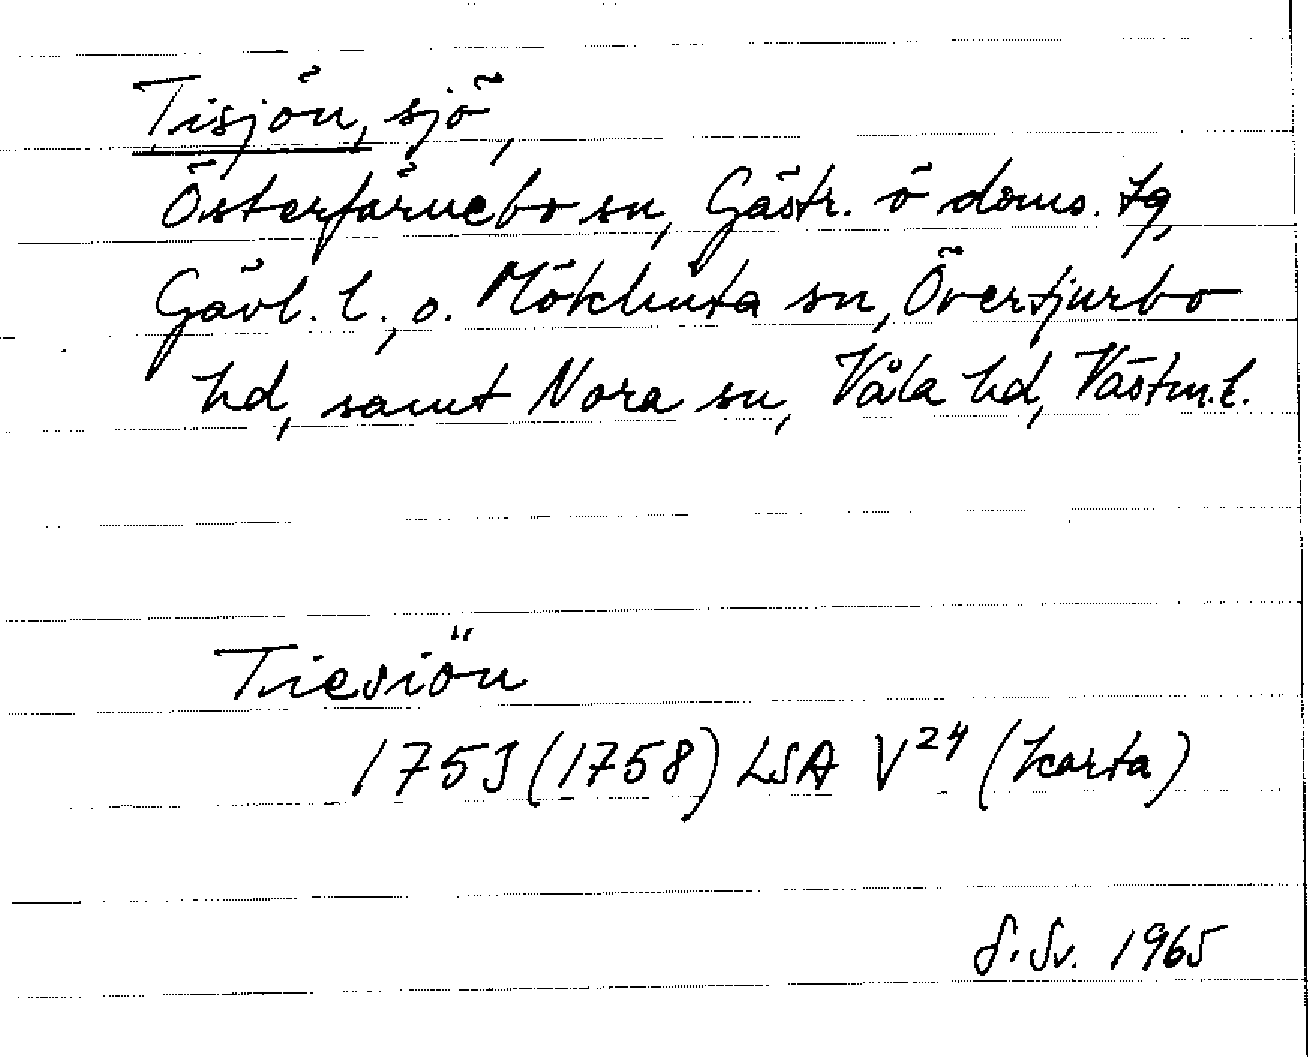 Tisjön, sjö,
Österfärnebo sn, Gästr. ö doms. tg,
Gävl. l., o. Möklinta sn, Övertjurbo
hd, samt Nora sn, Våla hd, Västm. l.
Tiesiön
1753 (1758) LSA V24 (karta)
S. Sv. 1965